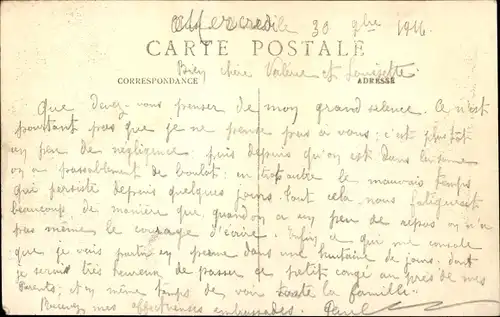 Mercredi le 30 9bre 1916.
CARTE POSTALE
Bien chère Valérie et Louisette.
CORRESPONDANCE
ADRESSE
Que devez-vous penser de mon grand silence. Ce n'est
pourtant pas que je ne pense pas à vous; c'est plutôt
un peu de négligence; puis depuis qu'on est dans
on a passablement de boulot: en outre le mauvais temps
qui persiste depuis quelques jours. Tout cela nous fatiguait
beaucoup, de manière que quand on a un peu de repos on n'a
pas même le courage d'écrire. Enfin, ce qui me console
que je vais partir en perme dans une huitaine de jours. dont
je serais très heureux de passer ce petit congé auprès de mes
Parents; et en même temps de voir toute la famille.
Recevez mes affectueuses embrassades. Paul